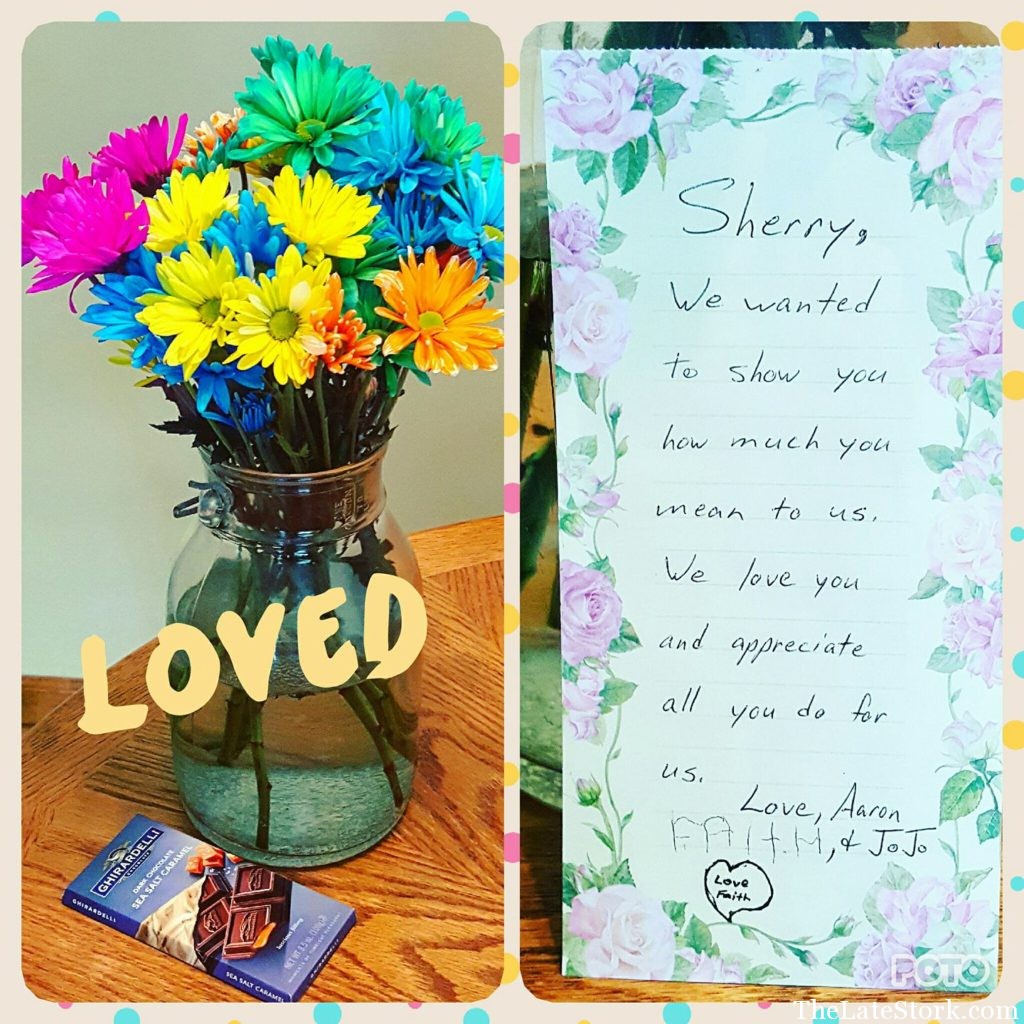 LOVED
GHIRARDELLI
DARK CHOCOLATE
SEA SALT CARAMEL
GHIRARDELLI
SEA SALT CARAMEL
Sherry,
We wanted
to show you
how much you
mean to us.
We love you
and appreciate
all you do for
us.
Love, Aaron
FAITH, & JoJo
Love
Faith
POTO
TheLateStork.com